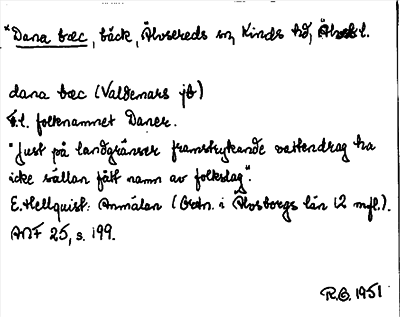 *Dana bæc, bäck, Älvsereds sn, Kinds hd, Älvsb l.
dana bæc (Valdemars jb)
T.l. folknamnet Daner.
"Just på landgränser framstrykande vattendrag ha
icke sällan fått namn av folkslag".
E. Hellquist: Anmälan (Ortn. i Älvsborgs län 12 mfl.).
ANF 25, s. 199.
R.O. 1951